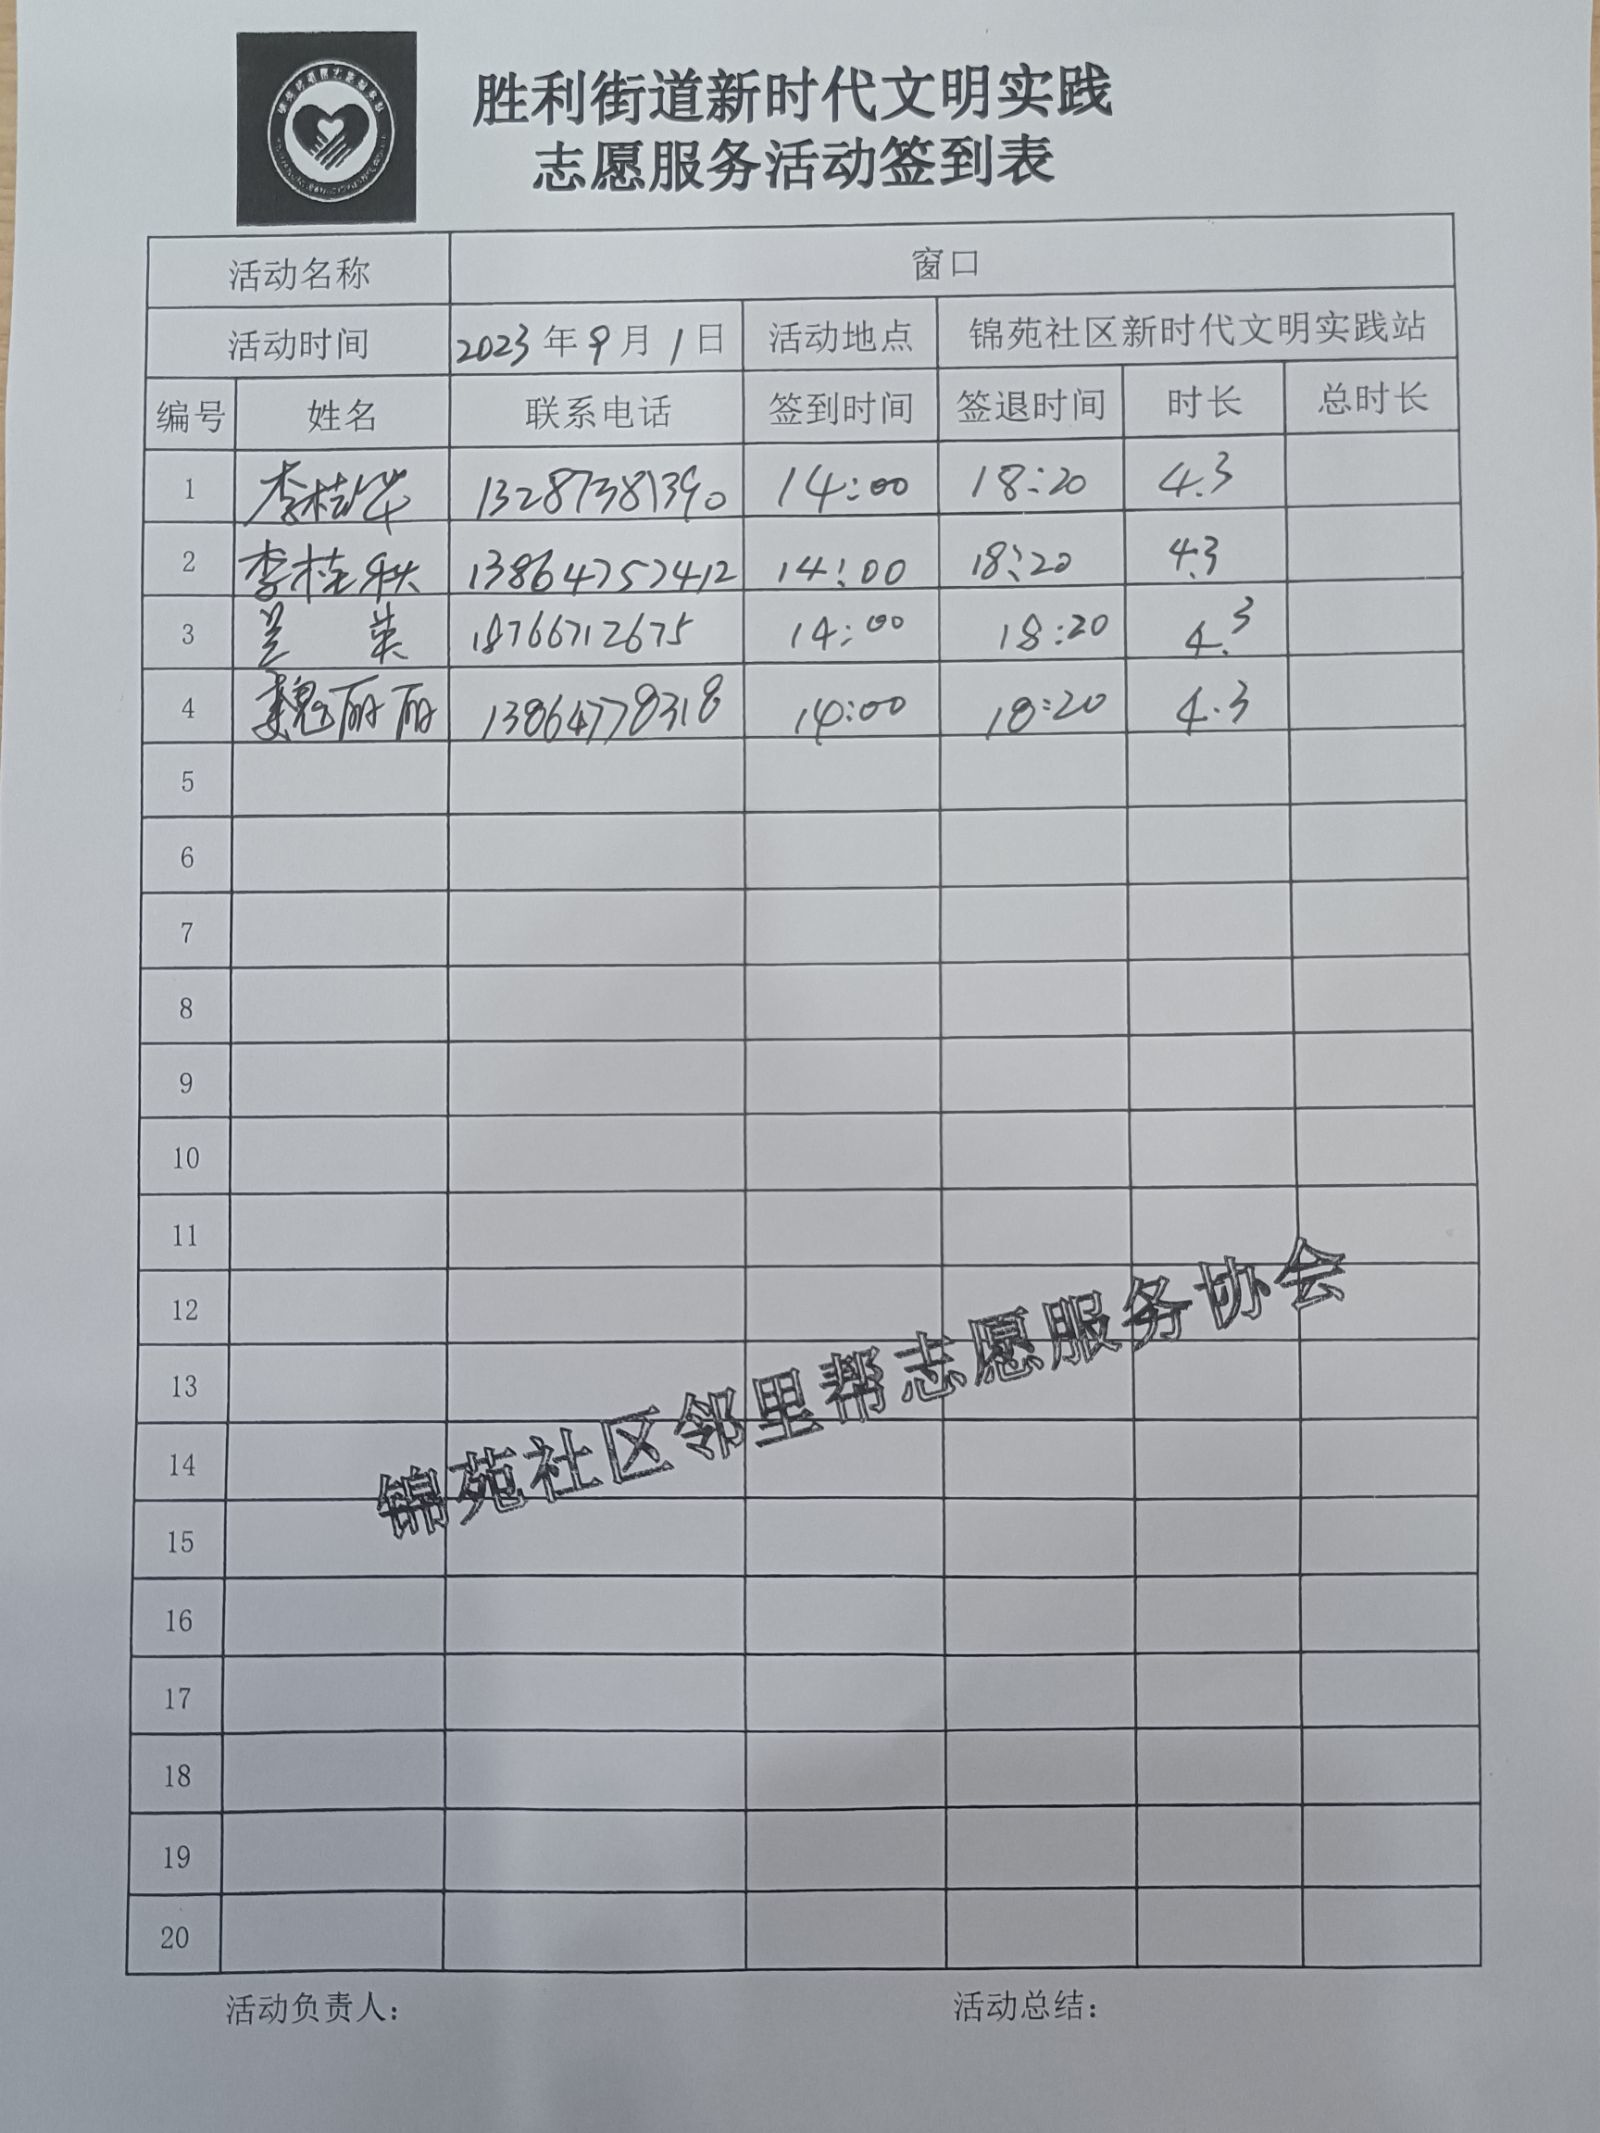 胜利街道新时代文明实践
志愿服务活动签到表
活动名称 窗口
活动时间 2023年9月1日 活动地点 锦苑社区新时代文明实践站
编号 姓名 联系电话 签到时间 签退时间 时长 总时长
1 李桂华 13287381390 14:00 18:20 4.3
2 李桂秋 13864757412 14:00 18:20 4.3
3 兰英 18766712675 14:00 18:20 4.3
4 魏丽丽 13864778318 14:00 18:20 4.3
5
6
7
8
9
10
11
12
13
14
15
16
17
18
19
20
锦苑社区邻里帮志愿服务协会
活动负责人: 活动总结: